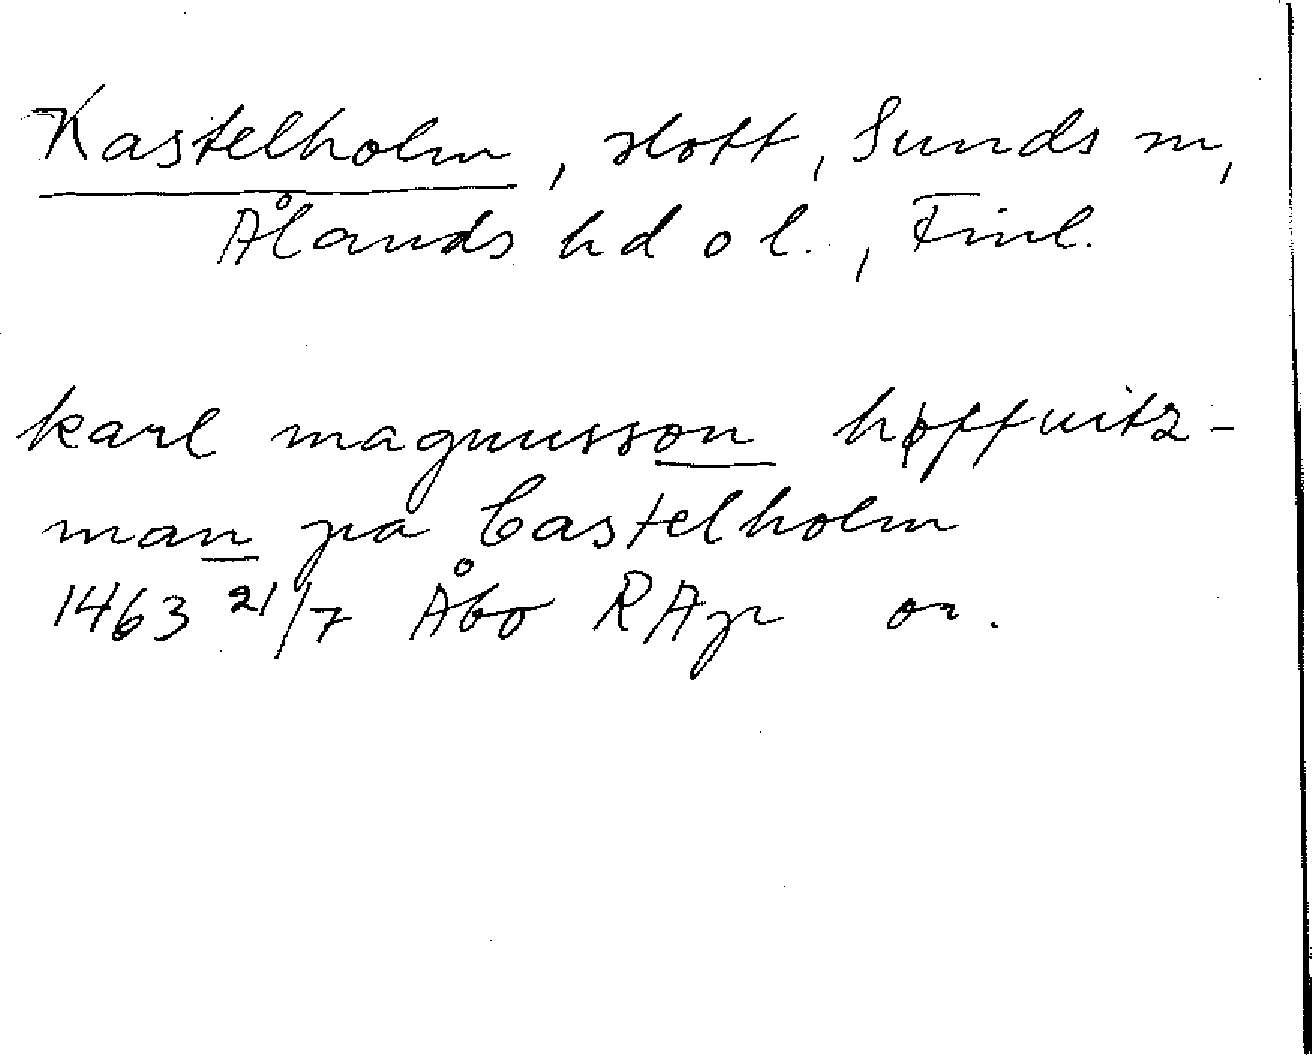 Kastelholm, slott, Sunds sn,
Ålands hd o l., Finl.
karl magnusson høffuitz-
man pa Castelholm
1463 21/7 Åbo RAp or.